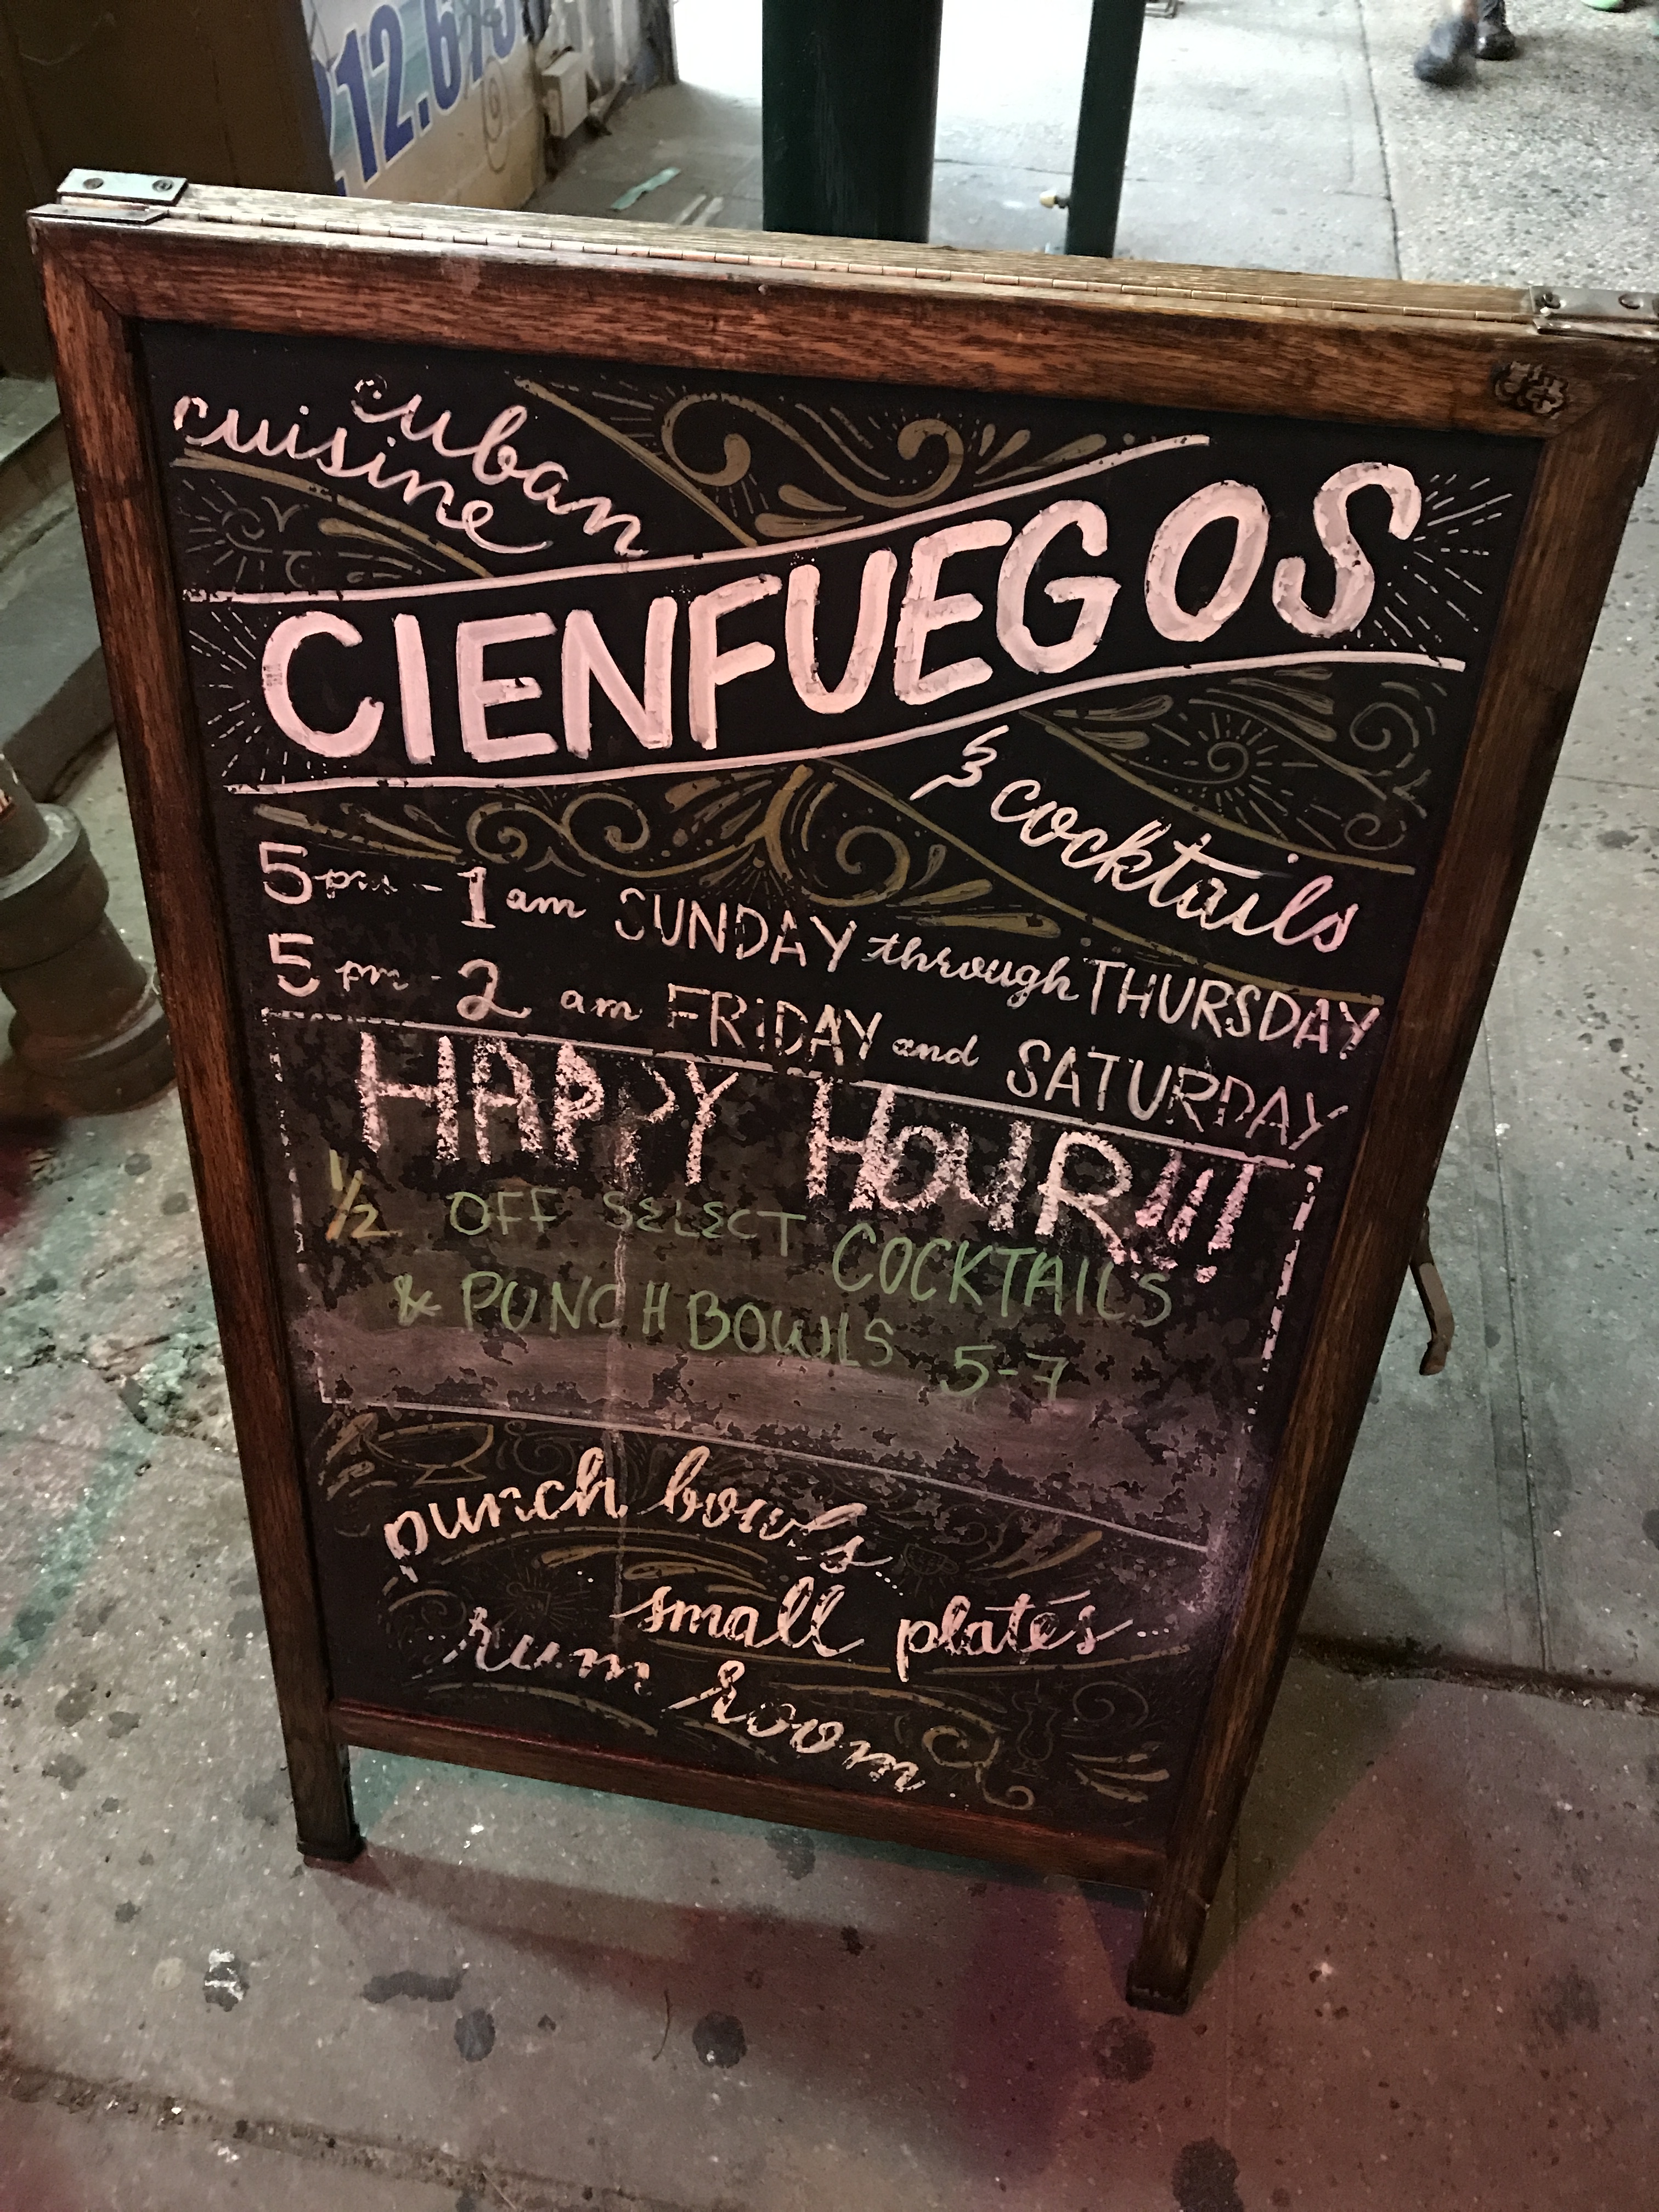 212.673
cuban
cuisine
CIENFUEGOS
& cocktails
5pm - 1am SUNDAY through THURSDAY
5pm - 2am FRIDAY and SATURDAY
HAPPY HOUR!!!
1/2 OFF SELECT COCKTAILS
& PUNCH BOWLS 5-7
punch bowls...
small plates...
rum room